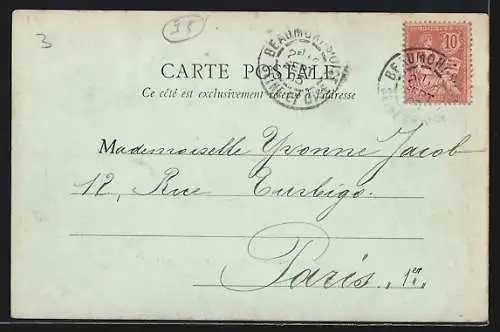 3
95
BEAUMONT
SEINE ET OISE
CARTE POSTALE
Ce côté est exclusivement réservé à l'adresse
10
BEAUMON
Mademoiselle Yvonne Jacob
12, Rue Turbigo
Paris „1er"